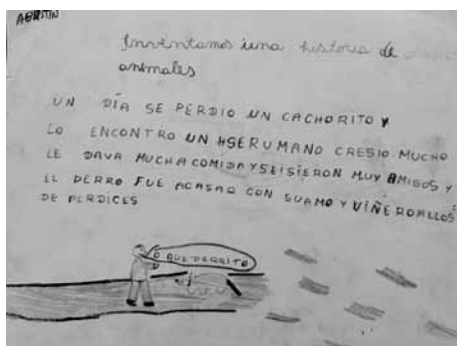 AGUSTIN
Inventamos una historia de
animales
UN DÍA SE PERDIO UN CACHORITO Y
LO ENCONTRO UN HSERUMANO CRESIO MUCHO
LE DAVA MUCHA COMIDA Y SEISIERON MUY AMIGOS Y
EL PERRO FUE ACASAR CON SUAMO Y VIÑERON
DE PERDICES
O QUE PERRITO